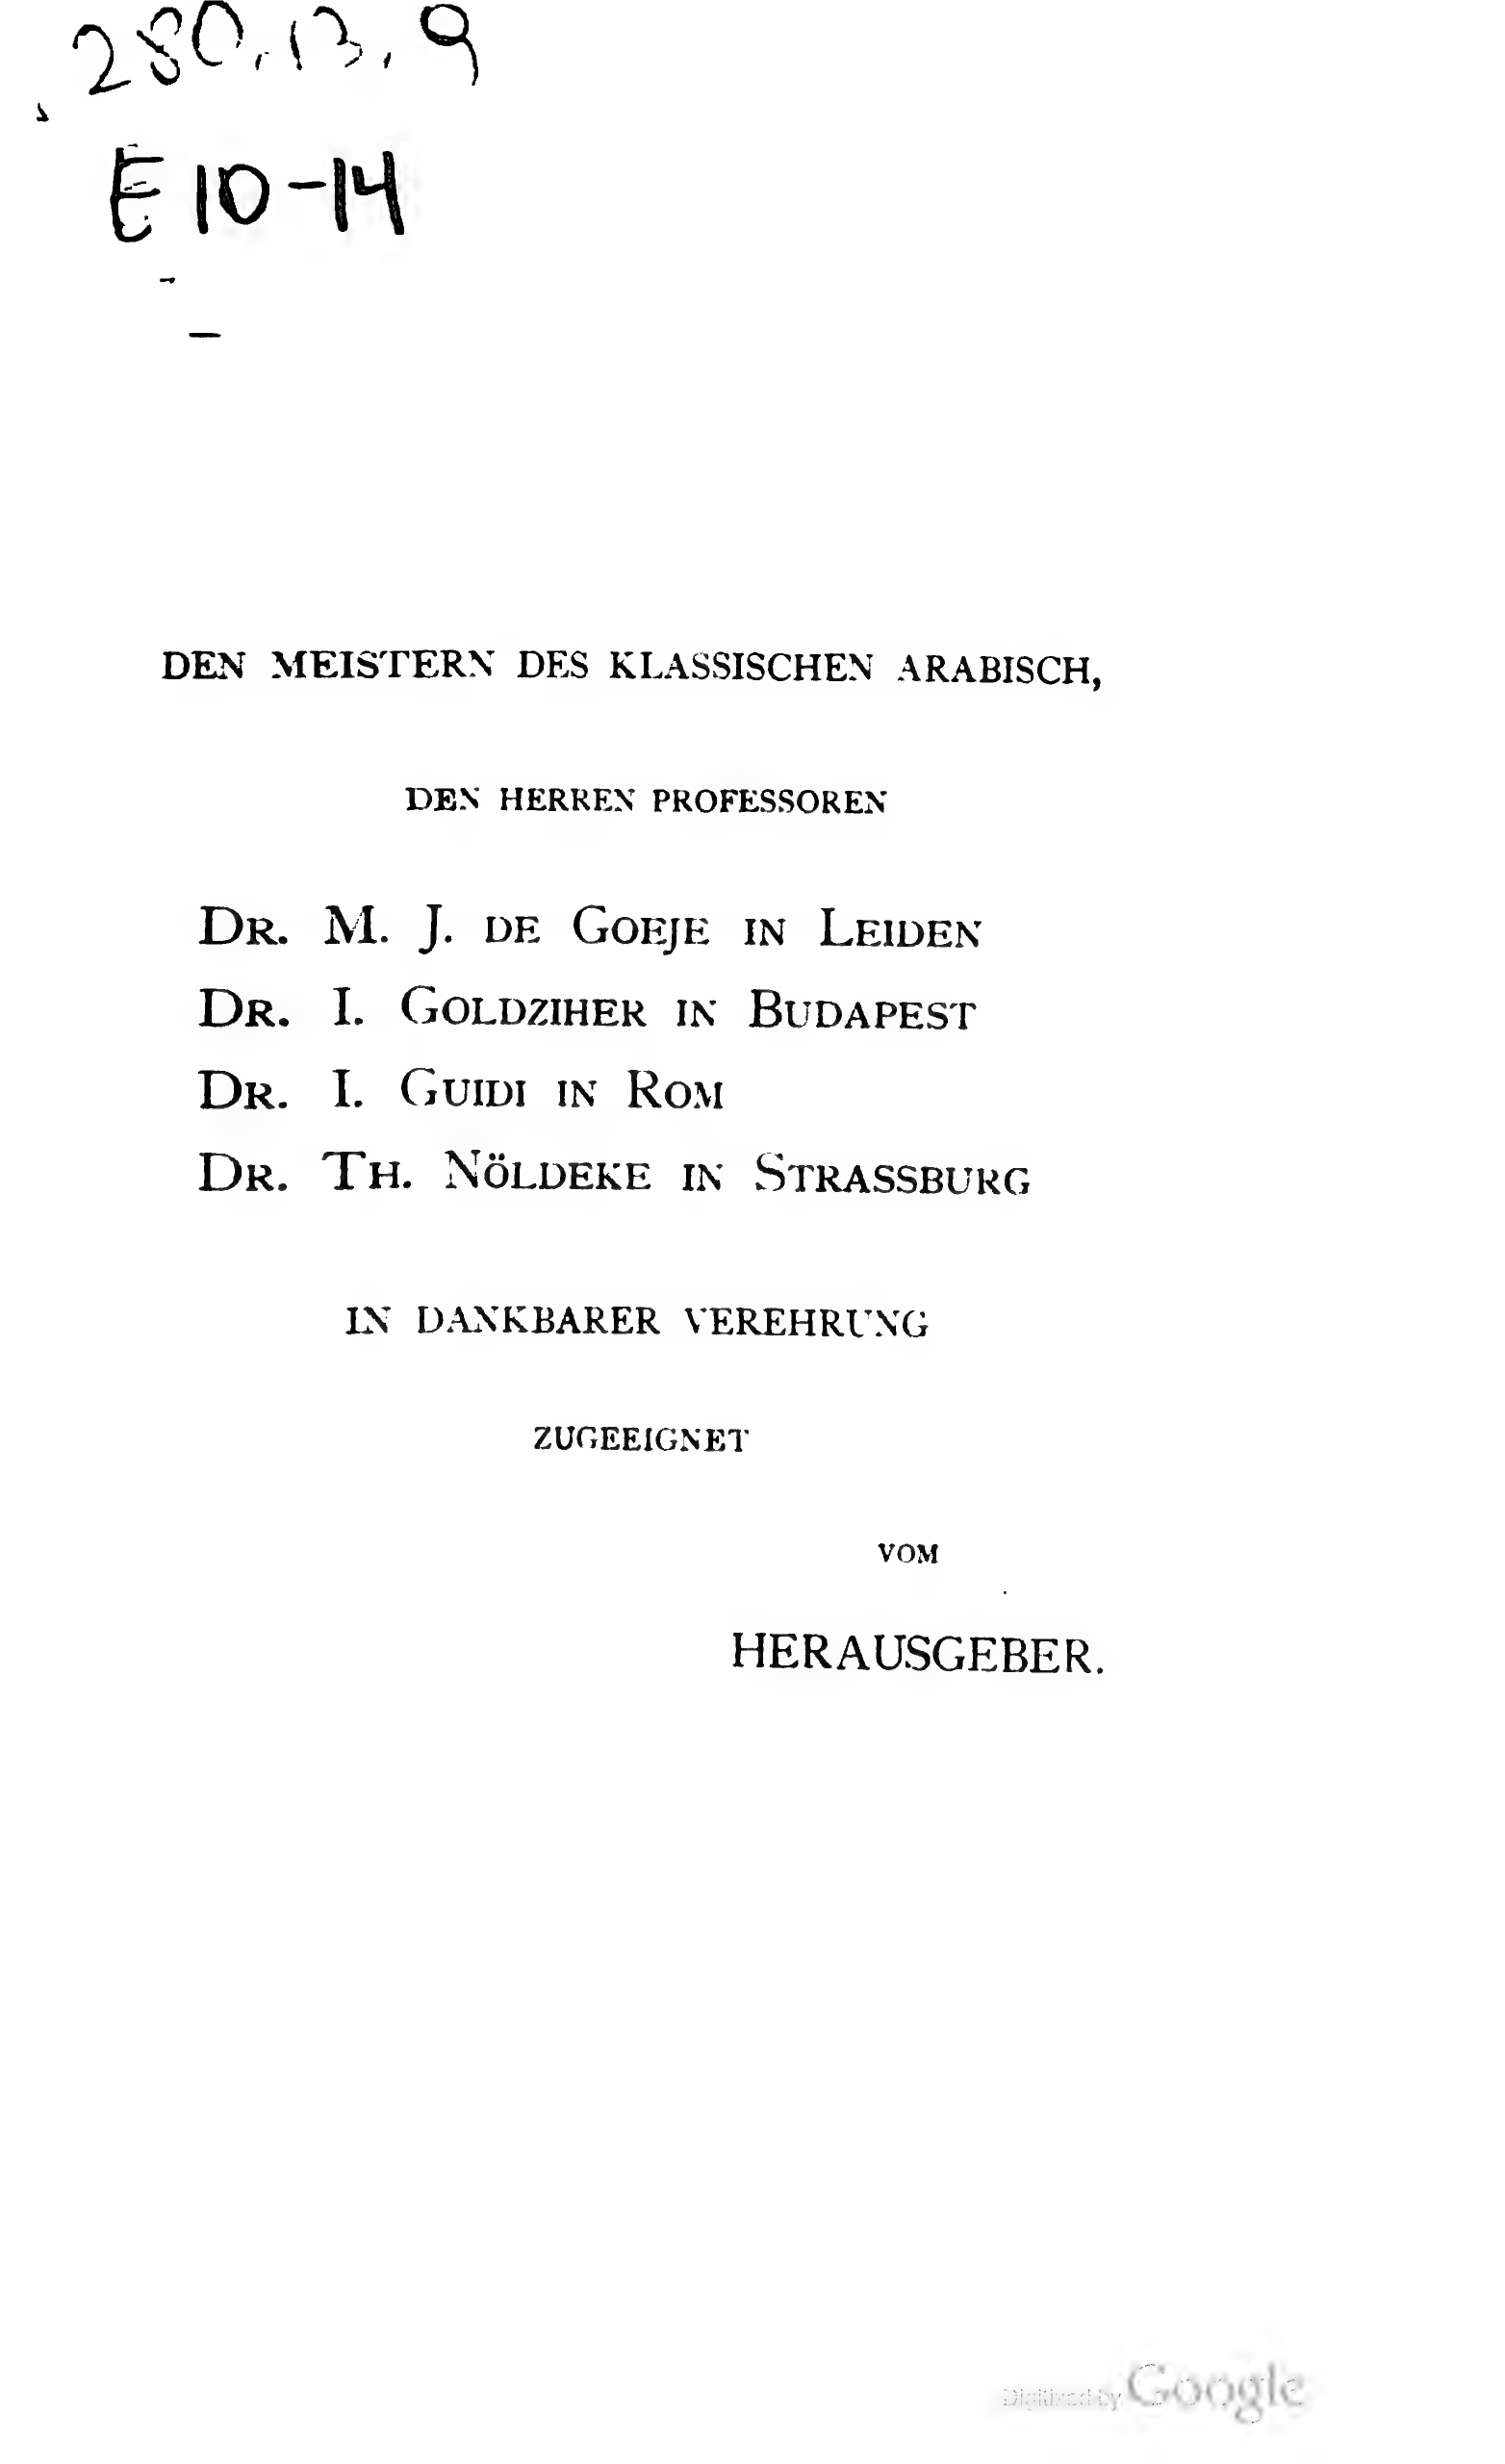 280.13.9
E 10-14
DEN MEISTERN DES KLASSISCHEN ARABISCH,
DEN HERREN PROFESSOREN
DR. M. J. DE GOEJE IN LEIDEN
DR. I. GOLDZIHER IN BUDAPEST
DR. I. GUIDI IN ROM
DR. TH. NÖLDEKE IN STRASSBURG
IN DANKBARER VEREHRUNG
ZUGEEIGNET
VOM
HERAUSGEBER.
Digitized by Google